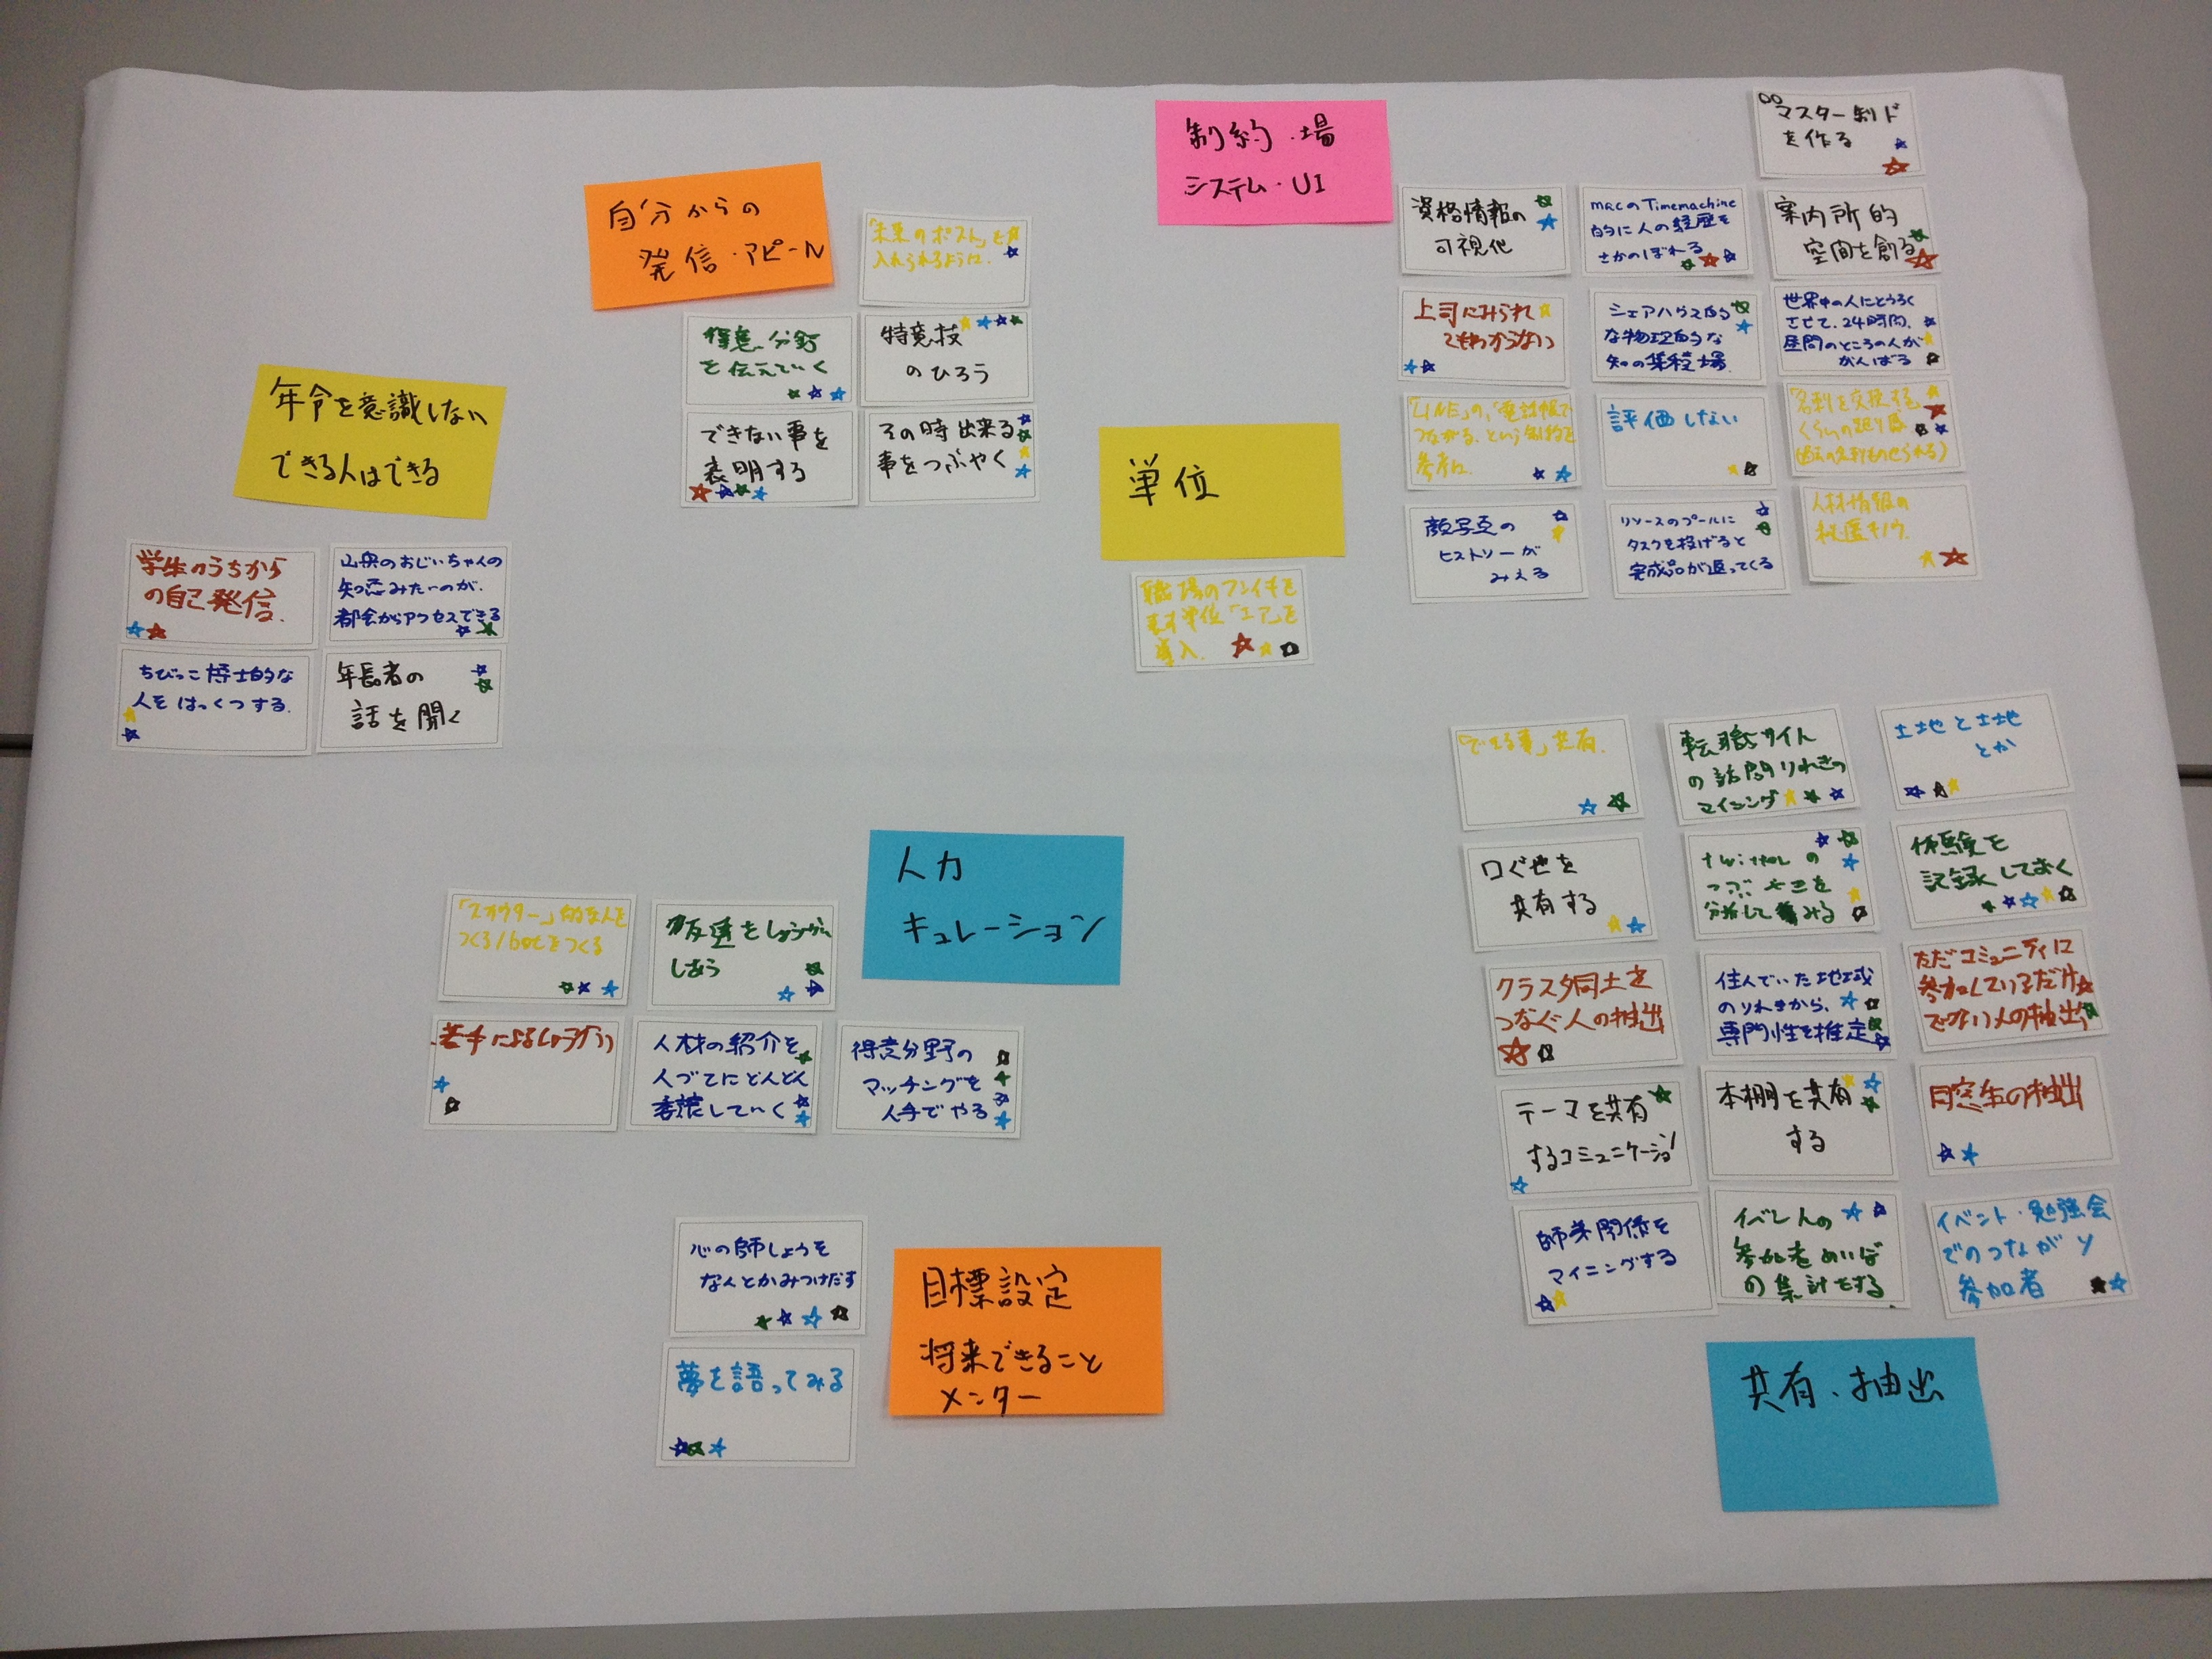 年令を意識しない
できる人はできる
学生のうちから
の自己発信.
山奥のおじいちゃんの
知恵みたいのが.
都会からアクセスできる
ちびっこ博士的な
人を はっくつする.
年長者の
話を聞く
自分からの
発信・アピール
「未来のポスト」を
入れられるように.
得意分野
を伝えていく
特意技
のひろう
できない事を
表明する
その時出来る
事をつぶやく
制約・場
システム・UI
マスター制ド
を作る
資格情報の
可視化
macのTimemachine
的に人の経歴を
さかのぼれる
案内所的
空間を創る
上司にみられ
てもわからない
シェアハウス的
な物理的な
知の集積場
世界中の人にとうろく
させて、24時間、
昼間のところの人が
がんばる
「LINE」の、「電話帳で
つながる、という制約を
参考に.
評価しない
「名刺を交換する
くらいの
顔写真の
ヒストリーが
みえる
リソースのプールに
タスクを投げると
完成品が返ってくる
人材情報の
秘匿キノウ
単位
職場のフンイキを
表す単位「エア」を
導入.
人力
キュレーション
「スカウター」的な人を
つくる/botをつくる
友達をしょうかい
しあう
若手によるしょうかい
人材の紹介を
人づてにどんどん
していく
得意分野の
マッチングを
人手でやる
心の師しょうを
なんとかみつけだす
夢を語ってみる
目標設定
将来できること
メンター
「できる事」共有.
転職サイト
の訪問りれきの
マイニング
土地と土地
とか
口ぐせを
共有する
twitterの
つぶやきを
分析してみる
体験を
記録しておく
クラスタ同士を
つなぐ人の抽出
住んでいた地域
のりれきから、
専門性を推定
ただコミュニティに
参加しているだけ
でない人の抽出
テーマを共有
するコミュニケーション
本棚を共有
する
同窓生の抽出
師弟関係を
マイニングする
イベントの
参加者めいぼ
の集計をする
イベント・勉強会
でのつながり
参加者
共有、抽出